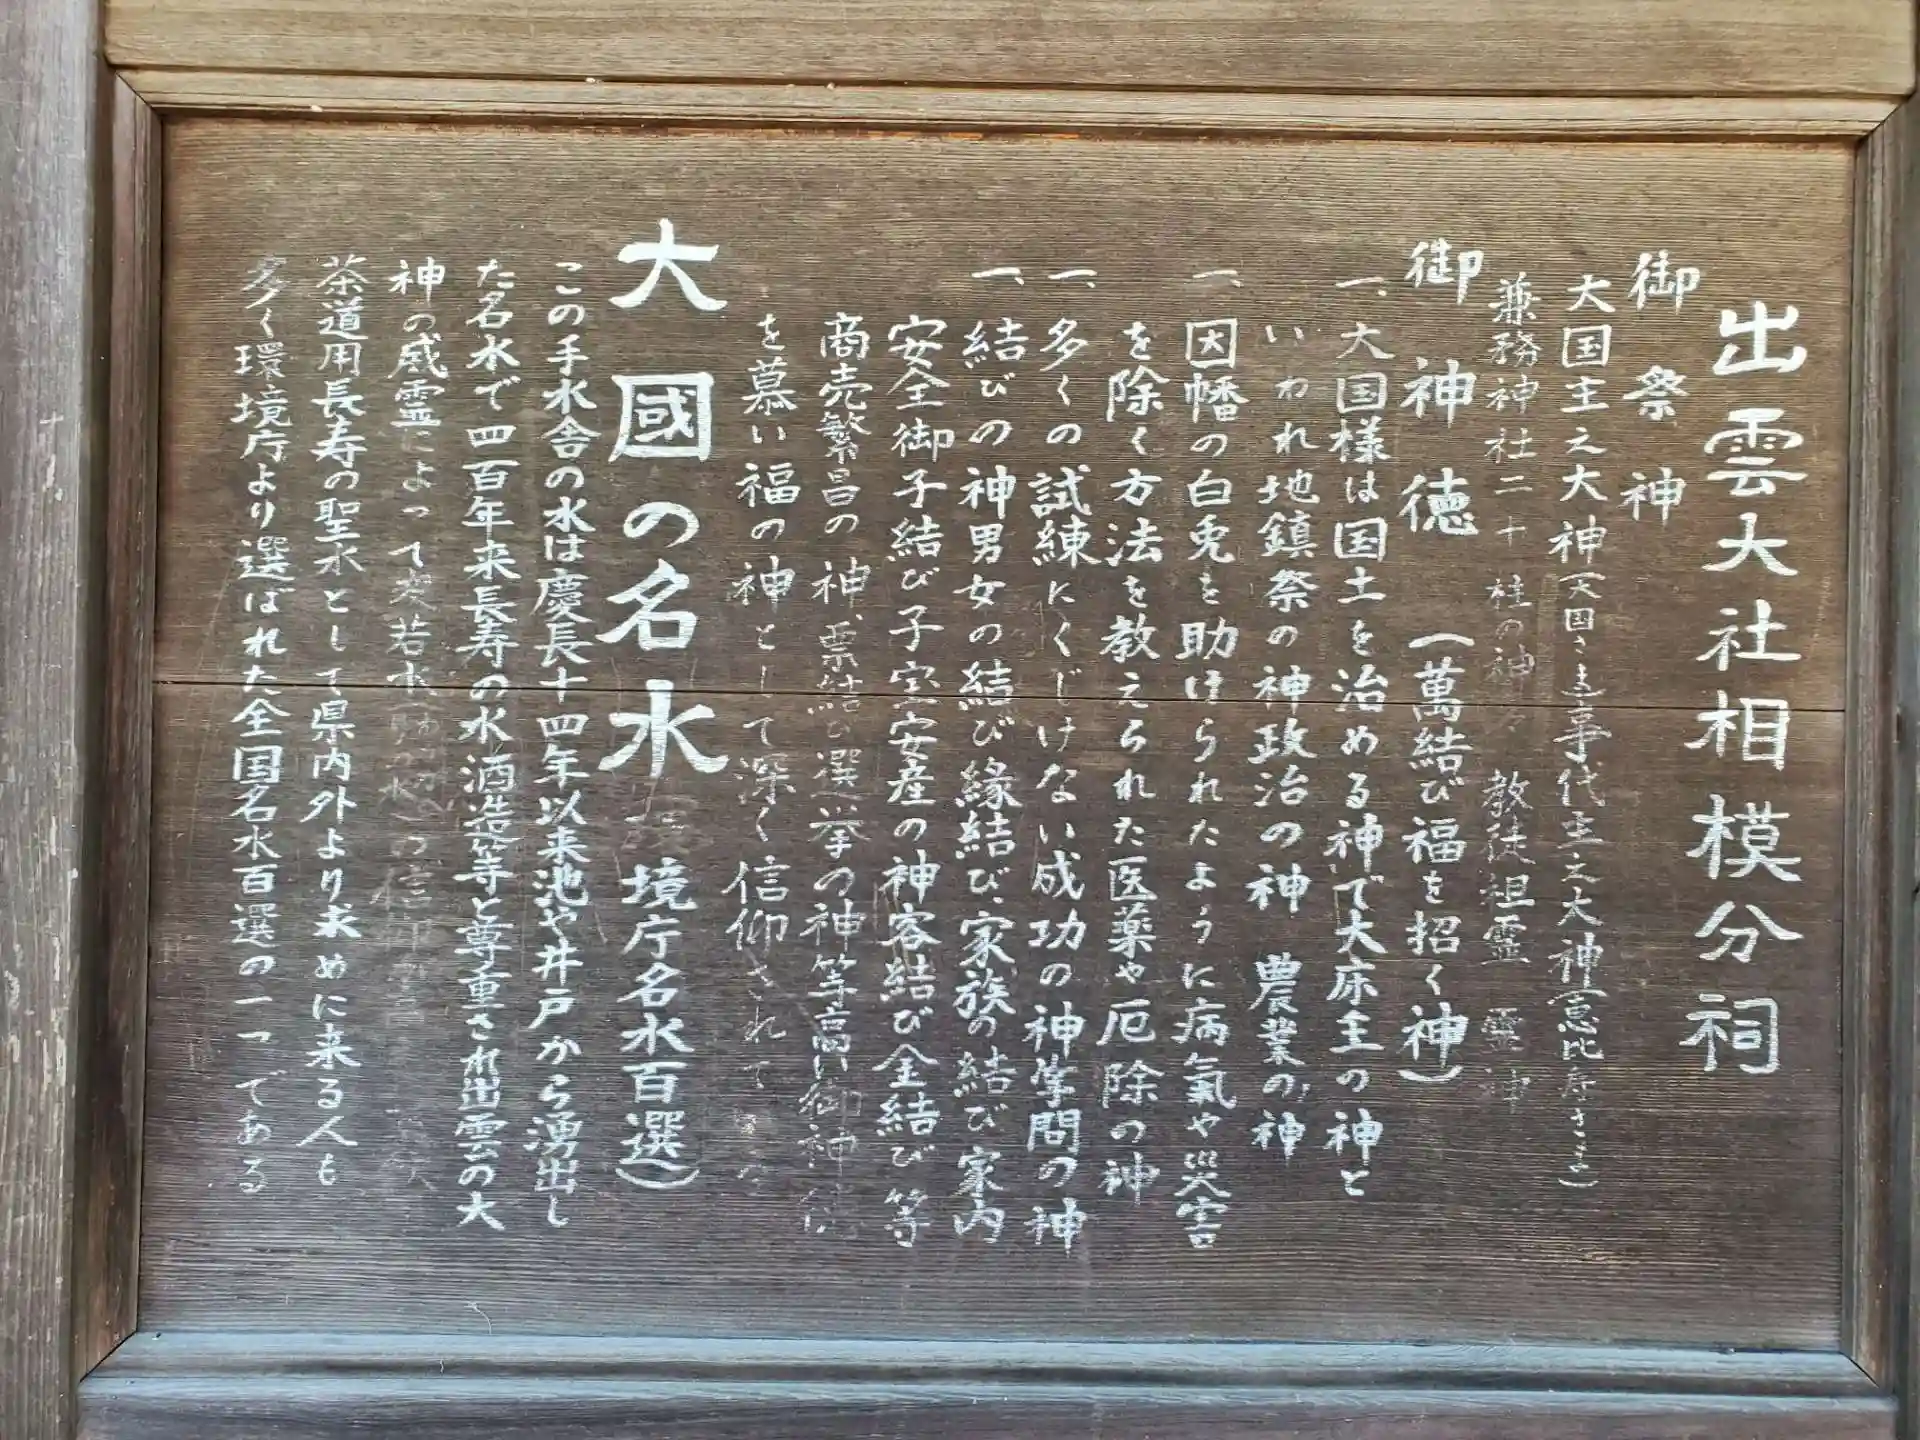 出雲大社相模分祠
御祭神
大国主之大神(大国さま)事代主之大神(恵比寿さま)
兼務神社二十 柱の神々 教徒祖霊 霊神
御神徳 (萬結び福を招く神)
一、大国様は国土を治める神で大床主の神と
いわれ地鎮祭の神政治の神 農業の神
一、因幡の白兎を助けられたように病氣や災害
を除く方法を教えられた医薬や厄除の神
一、多くの試練にくじけない成功の神学問の神
一、結びの神男女の結び縁結び、家族の結び家内
安全御子結び子宝安産の神客結び全結び等
商売繁昌の神、票結び選挙の神等高い御神徳
を慕い福の神として深く信仰されて
大國の名水 境庁名水百選)
この手水舎の水は慶長十四年以来池や井戸から湧出し
た名水で四百年来長寿の水酒造等と尊重され出雲の大
神の威霊によって 若水 の信仰
茶道用長寿の聖水として県内外より求めに来る人も
多く環境庁より選ばれた全国名水百選の一つである